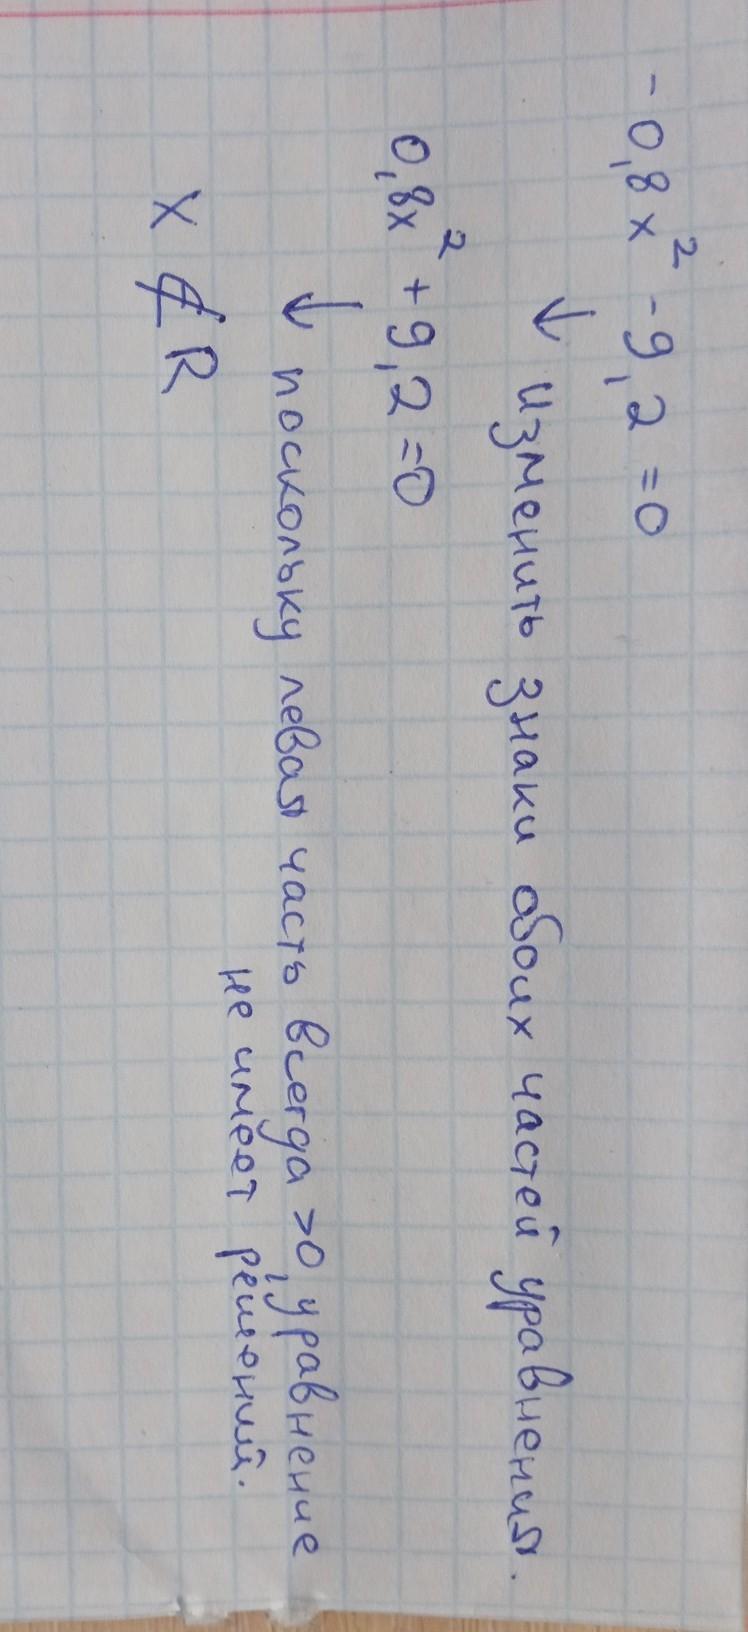 -0,8x² -9,2=0
↓ изменить знаки обоих частей уравнения.
0,8x² +9,2=0
↓ поскольку левая часть всегда >0, уравнение
не имеет решений.
X ∉ R